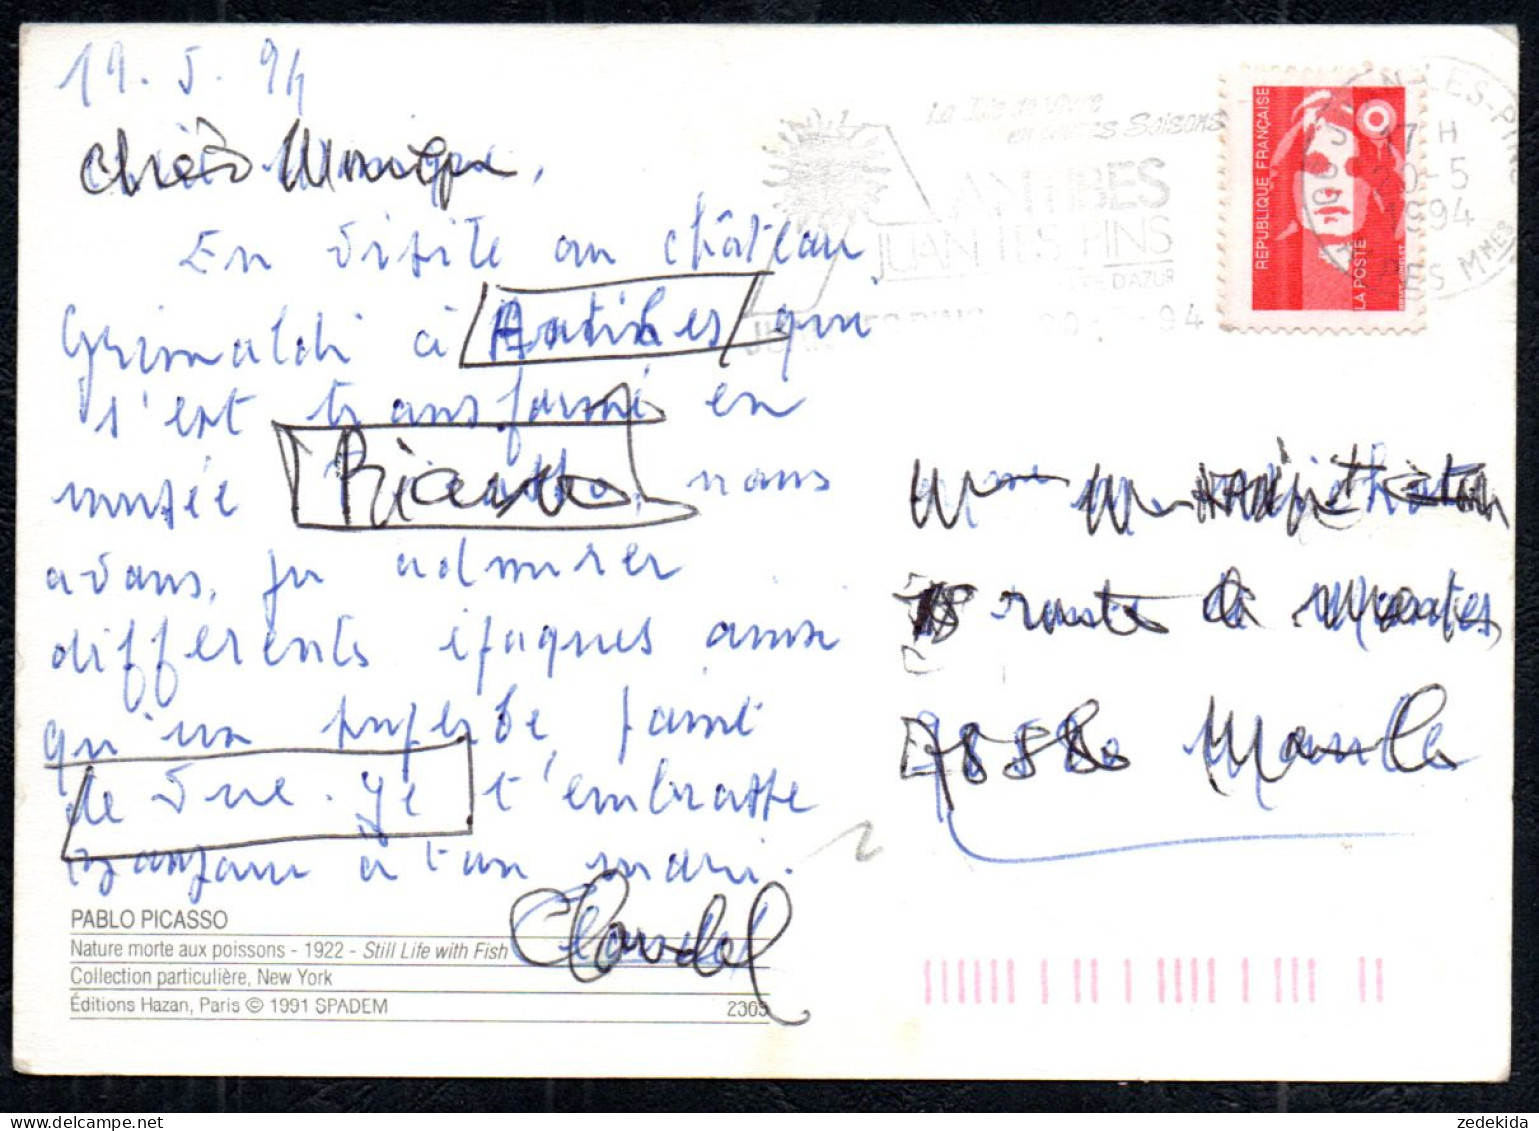 19.5.94
Chère Monique,
En visite au château
Grimaldi à Antibes qui
s'est transformé en
musée Picasso, nous
avons pu admirer
différents époques ainsi
qu'un superbe point
de vue. Je t'embrasse
bonjour à ton mari.
Claudel
PABLO PICASSO
Nature morte aux poissons - 1922 - Still Life with Fish
Collection particulière, New York
Éditions Hazan, Paris © 1991 SPADEM
2365
La Joie de Vivre
en toutes Saisons
ANTIBES
JUAN LES PINS
CÔTE D'AZUR
94
REPUBLIQUE FRANÇAISE
LA POSTE
N-LES-PINS
17 H
20-5
1994
PES MMES
Mme
route de
Mantes
78580 Maule
zedekida